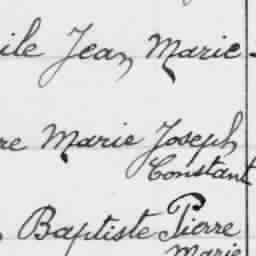 ile Jean Marie -
re Marie Joseph
Constant
Baptiste Pierre
Marie